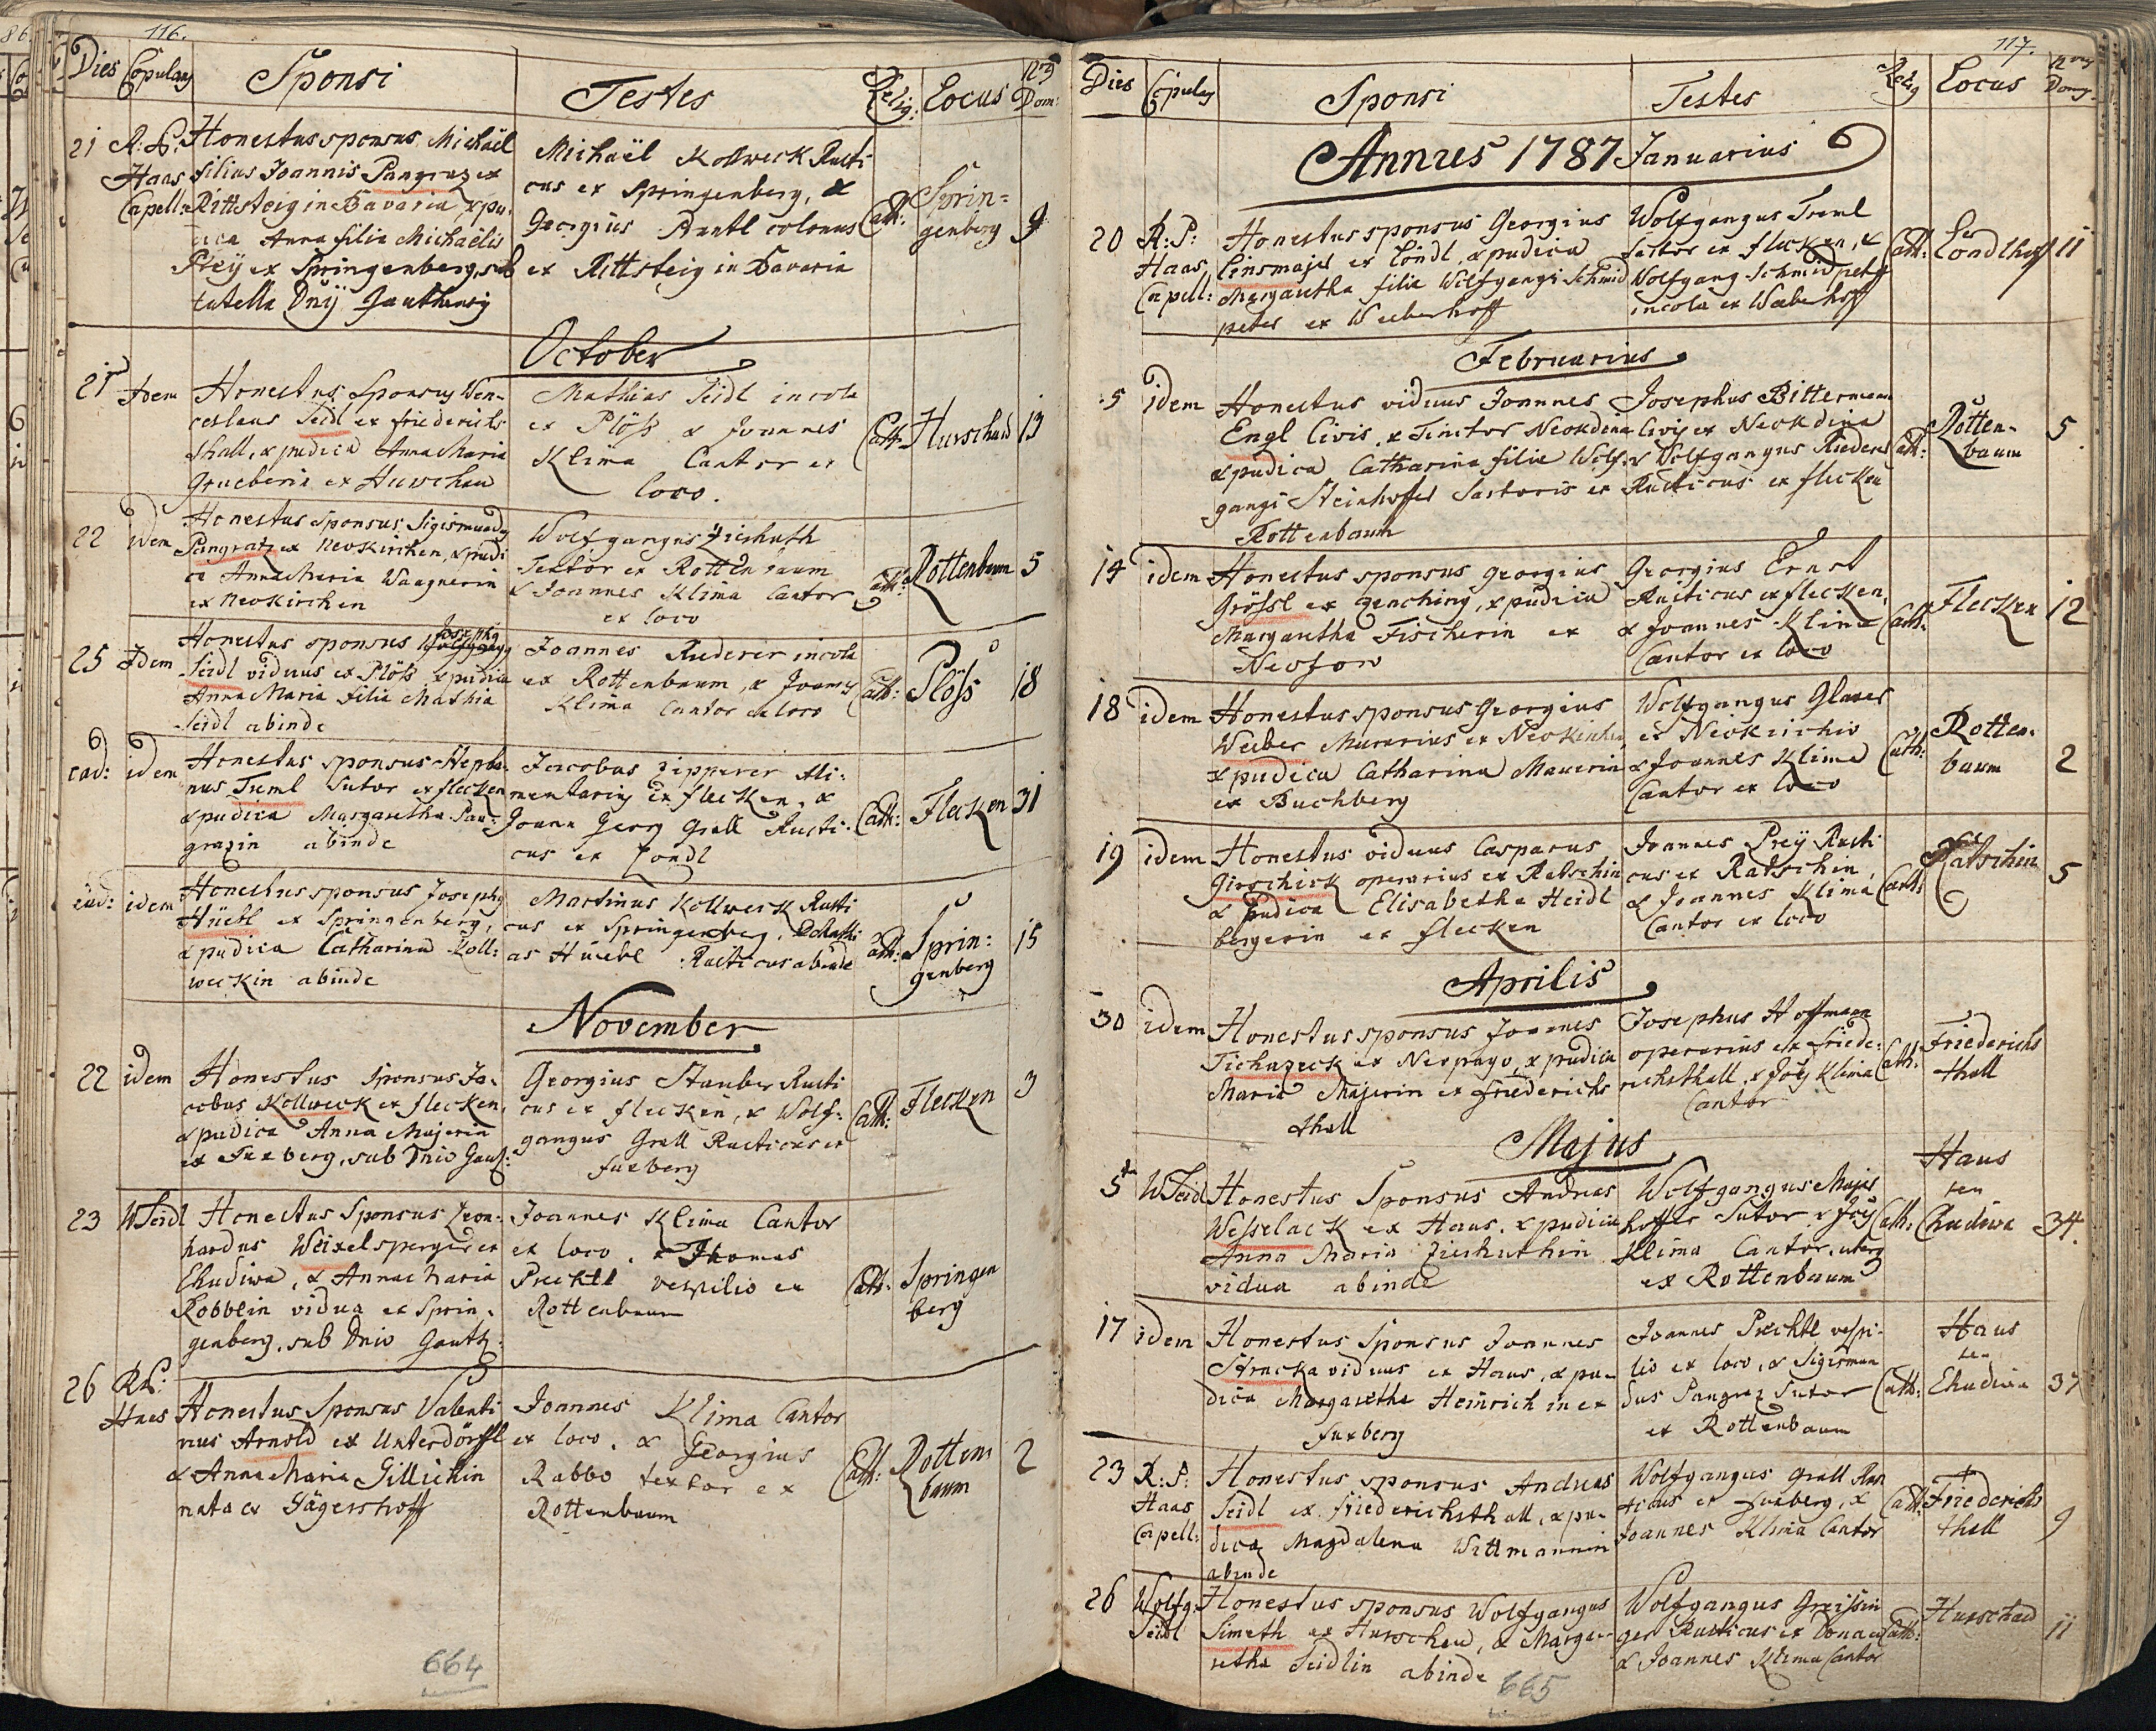 116.
Dies Copulans Sponsi Testes Relig: Locus Nrus Dom:
21 R: P. Haas Capell:
Honestus sponsus Michaël
filius Joannis Pangraz ex
Rittsteig in Bavaria & pu-
dica Anna filia Michaëlis
Preÿ ex Springenberg, sub
tutella Dnÿ
Michaël Kollweck Rusti
cus ex Springenberg, &
Georgius Stantl colonus
ex Rittsteig in Bavaria
Cath: Sprin=
genberg 9
October
21 Idem
Honestus Sponsus Wen-
ceslaus Seidl ex friederichs
thall, & pudica Anna Maria
Grueberin ex Hurschau
Mathias Seidl incola
ex Plöss & Joannes
Klima Cantor ex
loco.
Cath: Hurschau 13
22 idem
Honestus Sponsus Sigismundus
Pangratz ex Neokirchen, & pudi
ca Anna Maria Waagnerin
ex Neokirchen
Wolfgangus Zieshuth
Textor ex Rottenbaum
& Joannes Klima Cantor
ex loco
Cath: Rottenbaum 5
25 Idem
Honestus sponsus Josephus
Seidl viduus ex Plöss, & pudica
Anna Maria filia Mathia
Seidl abinde
Joannes Riederer incola
ex Rottenbaum, & Joannes
Klima Cantor ex loco
Cath: Plöss 18
ead: idem
Honestus sponsus Stepha-
nus Tuml Sutor ex flecken
& pudica Margaretha Pan-
grazin abinde
Jacobus Zipperer Ali-
mentarius ex flecken, &
Joann Georg Grall Rusti-
cus ex Londl
Cath: Flecken 31
ead: idem
Honestus sponsus Josephus
Hüebl ex Springenberg,
& pudica Catharina Koll-
weckin abinde
Martinus Kollweck Rusti
cus ex Springenberg, & Mathi
as Hüebl Rusticus abinde
Cath: Sprin:
genberg 15
November
22 idem
Honestus Sponsus Ja-
cobus Kollweck ex flecken,
& pudica Anna Majerin
ex Fuxberg, sub Dnio Gautz:
Georgius Stauber Rusti
cus ex flecken, & Wolf-
gangus Grall Rusticus ex
fuxberg
Cath: Flecken 3
23 W Seidl
Honestus Sponsus Leon-
hardus Weixelsperger ex
Chudiwa, & Anna Maria
Robblin vidua ex Sprin-
genberg, sub Dnio Gautz:
Joannes Klima Cantor
ex loco, & Thomas
Prechtl vespilio ex
Rottenbaum
Cath: Springen
berg
26 R.P. Haas
Honestus Sponsus Valenti
nus Arnold ex Unterdörffl
& Anna Maria Gillichin
nata ex Jägershoff
Joannes Klima Cantor
ex loco, & Georgius
Rabbo textor ex
Rottenbaum
Cath: Rotten
baum 2
664
117.
Dies Copulans Sponsi Testes Relig Locus Nrus Domus
Annus 1787 Januarius
20 R: P: Haas Capell:
Honestus sponsus Georgius
Linsmajer ex Londl, & pudica
Margaretha filia Wolfgangi Schmid
peter ex Weeberhoff
Wolfgangus Treml
sartor ex flecken, &
Wolfgang Schmidpeter
incola ex Weeberhoff
Cath: Londlhoff 11
Februarius
5 idem
Honestus viduus Joannes
Engl Civis & Tinctor Neokdina
& pudica Catharina filia Wolf-
gangi Steinhofer Sartoris ex
Rottenbaum
Josephus Bittermann
Civis ex Neokdina
& Wolfgangus Riederer
Rusticus ex flecken
Cath: Rotten-
baum 5
14 idem
Honestus sponsus Georgius
Grössl ex genching, & pudica
Margaretha Fischerin ex
Neoforo
Georgius Ernst
Rusticus ex flecken,
& Joannes Klima
Cantor ex loco
Cath: Flecken 12
18 idem
Honestus sponsus Georgius
Weeber Murarius ex Neokirchen
& pudica Catharina Mauerin
ex Buchberg
Wolfgangus Glaser
ex Neokirchio
& Joannes Klima
Cantor ex loco
Cath: Rotten-
baum 2
19 idem
Honestus viduus Casparus
Girschick operarius ex Ratschin
& Pudica Elisabetha Heidl
bergerin ex flecken
Joannes Preÿ Rusti
cus ex Ratschin,
& Joannes Klima
Cantor ex loco
Cath: Ratschin 5
Aprilis
30 idem
Honestus sponsus Joannes
Tichazeck ex Nerpago, & pudica
Maria Majerin ex friederichs
thall
Josephus Hoffmann
operarius ex friede-
richsthall, & Joes Klima
Cantor
Cath: Friederichs
thall
Majus
5 W Seidl
Honestus Sponsus Andreas
Wesselack ex Haus, & pudica
Anna Maria Zieshuthin
vidua abinde
Wolfgangus Majer
hoffer Sutor & Joes
Klima Cantor, uterq
ex Rottenbaum
Cath: Haus
ten
Chudiwa 34.
17 idem
Honestus Sponsus Joannes
Strucka viduus ex Haus, & pu-
dica Margaretha Heinrichin ex
fuxberg
Joannes Prechtl vespi-
lio ex loco, & Sigismun
dus Pangraz Sutor
ex Rottenbaum
Cath: Haus
ten
Chudiwa 37
23 R: P: Haas Capell:
Honestus sponsus Andreas
Seidl ex friederichsthall, & pu-
dica Magdalena Wittmannin
abinde
Wolfgangus Grall Rus
ticus ex fuxberg, &
Joannes Klima Cantor
Cath: Friederichs
thall 9
26 Wolfg: Seidl
Honestus sponsus Wolfgangus
Simeth ex Hurschau, & Marga-
retha Seidlin abinde
Wolfgangus Greissin
ger Rusticus ex Donau
& Joannes Klima Cantor
Cath: Hurschau 11
665